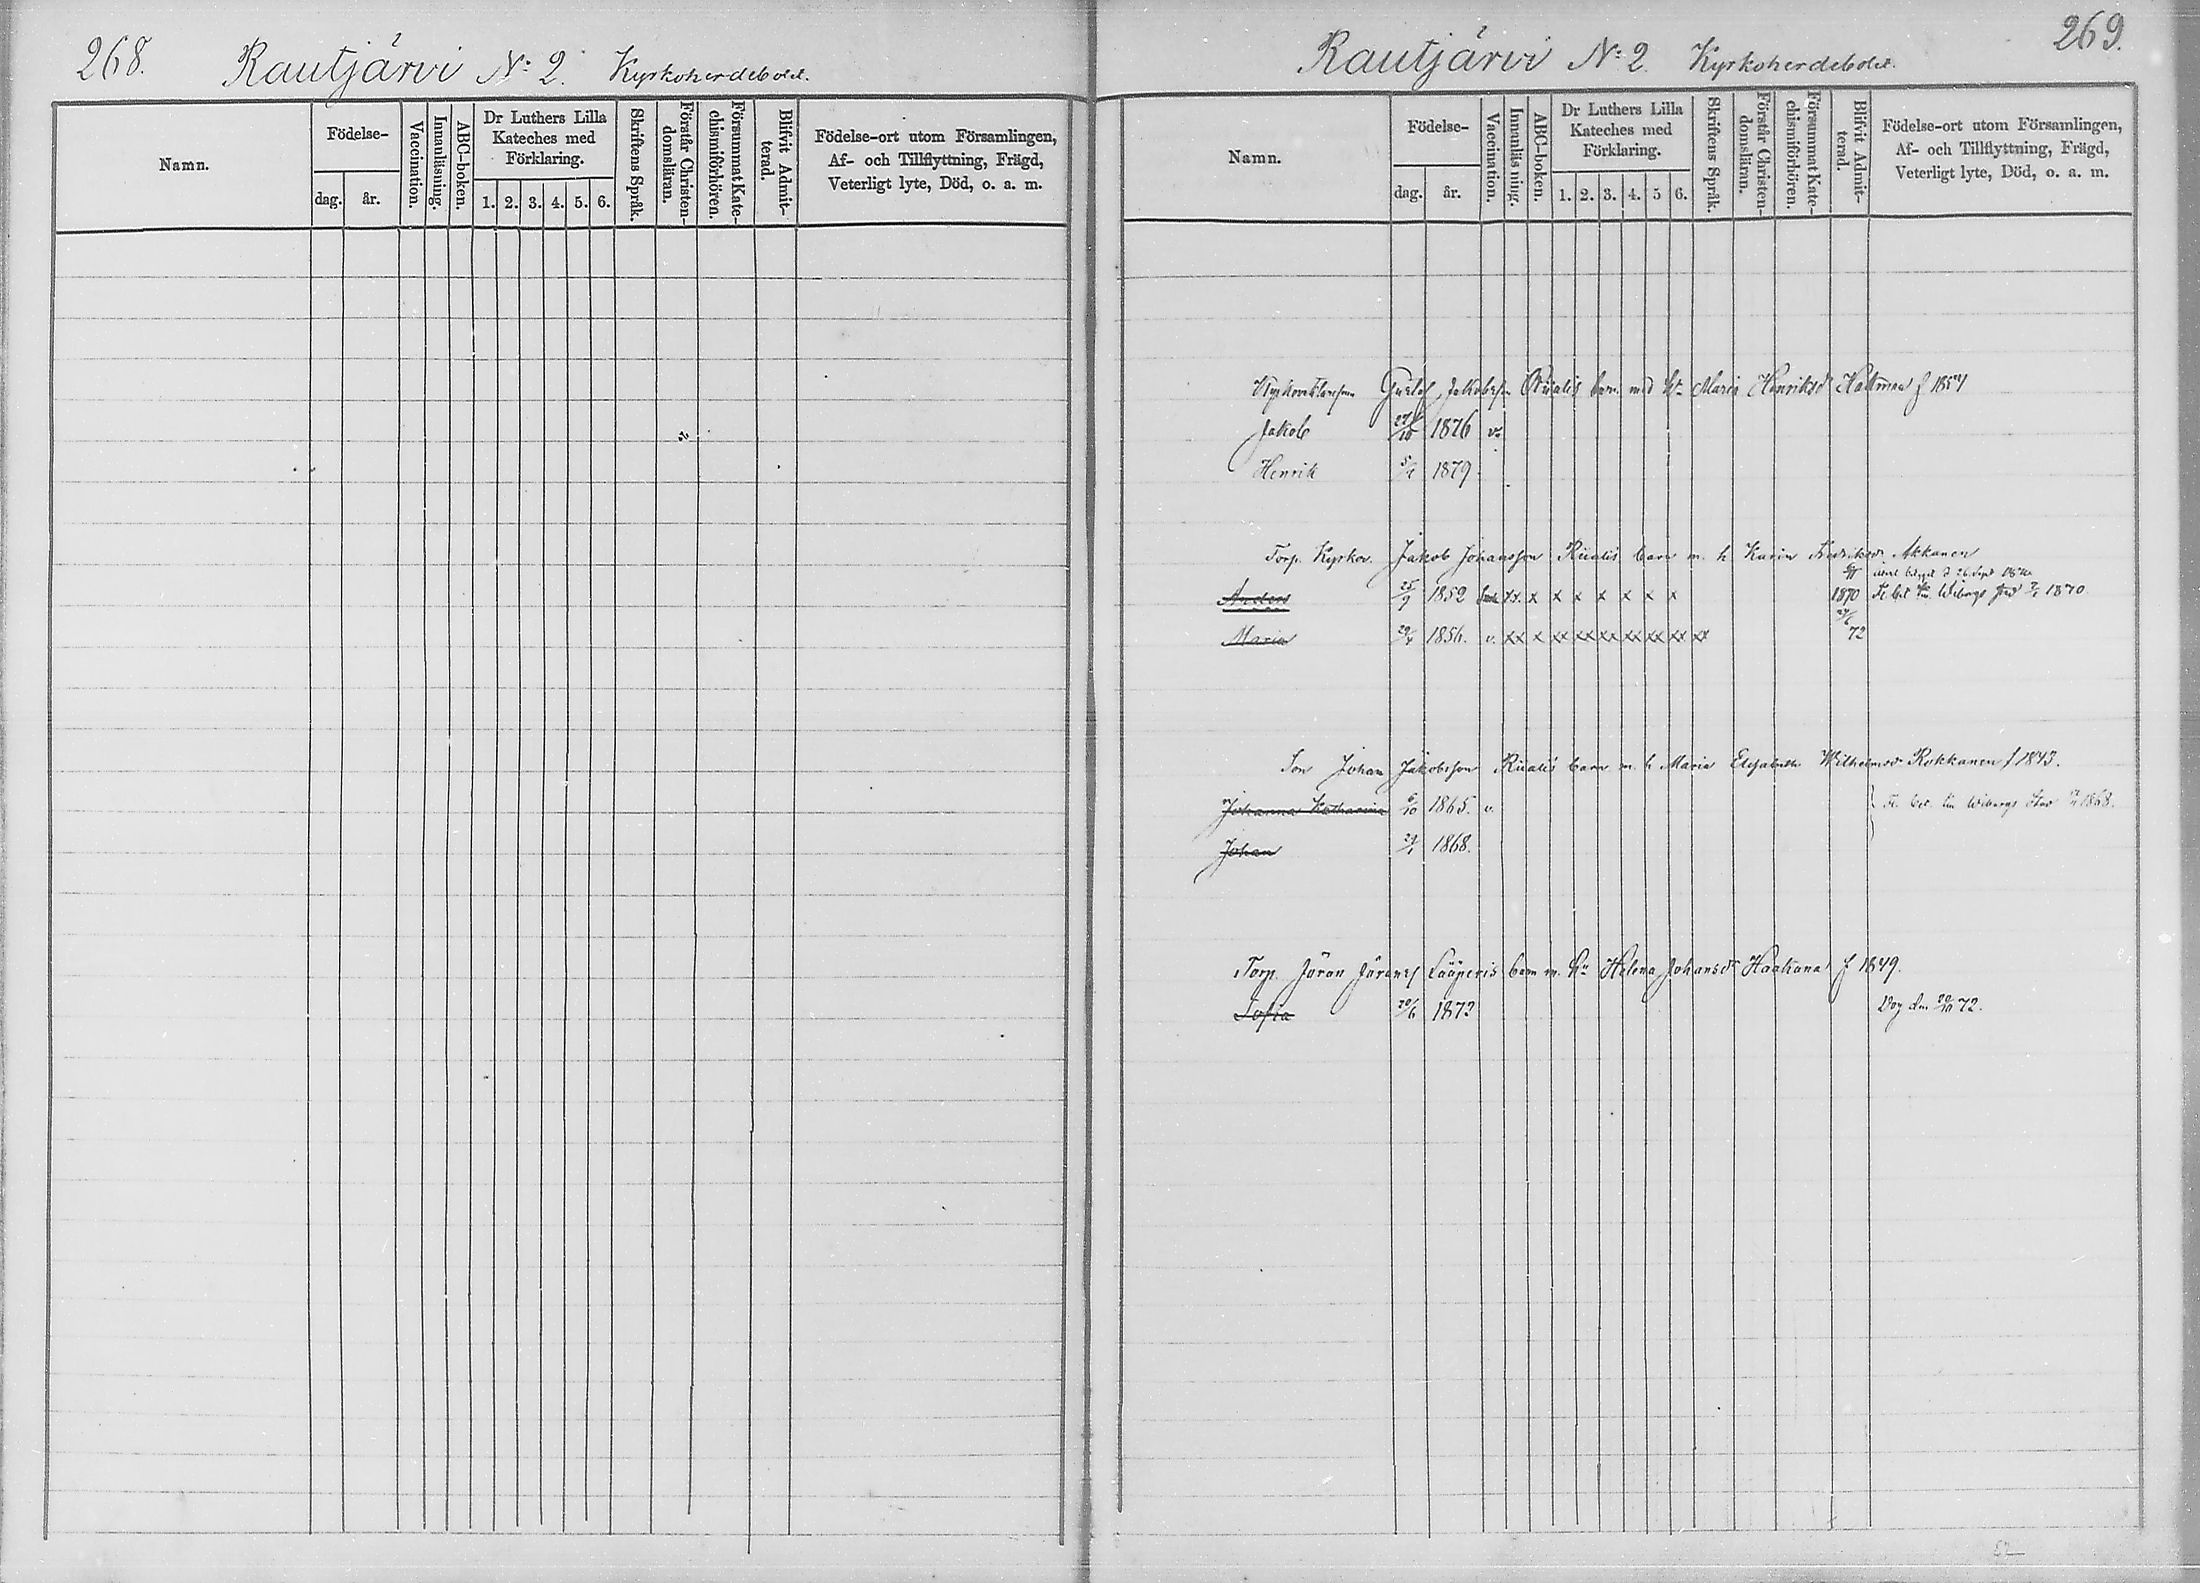 268. Rautjärvi № 2. Kyrkoherdebolet.
Namn.
Födelse-
dag. år.
Vaccination.
Innanläsning.
ABC-boken.
Dr Luthers Lilla
Kateches med
Förklaring.
1. 2. 3. 4. 5. 6.
Skriftens Språk.
Förstår Christen-
domsläran.
Försummat Kate-
chismiförhören.
Blifvit Admit-
terad.
Födelse-ort utom Församlingen,
Af- och Tillflyttning, Frägd,
Veterligt lyte, Död, o. a. m.
Rautjärvi № 2 Kyrkoherdebolet. 269.
Namn.
Födelse-
dag. år.
Vaccination.
Innanläsning.
ABC-boken.
Dr Luthers Lilla
Kateches med
Förklaring.
1. 2. 3. 4. 5 6.
Skriftens Språk.
Förstår Christen-
domsläran.
Försummat Kate-
chismiförhören.
Blifvit Admit-
terad.
Födelse-ort utom Församlingen,
Af- och Tillflyttning, Frägd,
Veterligt lyte, Död, o. a. m.
Gustaf Jakobsson Riialis barn med h. Maria Henriksdr
Jakob 1876 v.
Henrik 1879
Torp. Kyrkov. Jakob Johansson Riialis barn m. h Karin Fredriksdr Akkanen
Anders 25/9 1852 x x x x x x x 1870 1870
Maria 1856. v. xx x xx xx xx xx xx xx xx 72
Son Johan Jakobsson Riialis barn m. h Maria Elisabeth Wilhelmsdr Rokkanen f 1843.
Johanna Katharina 6/10 1865. v. Wiborgs Stad 1868.
Johan 1868.
Torp. Jöran Jöranss Lääperis barn m. h. Helena Johansdr Haakana f 1849.
Sofia 20/6 1872 Dog den 20/10 72.